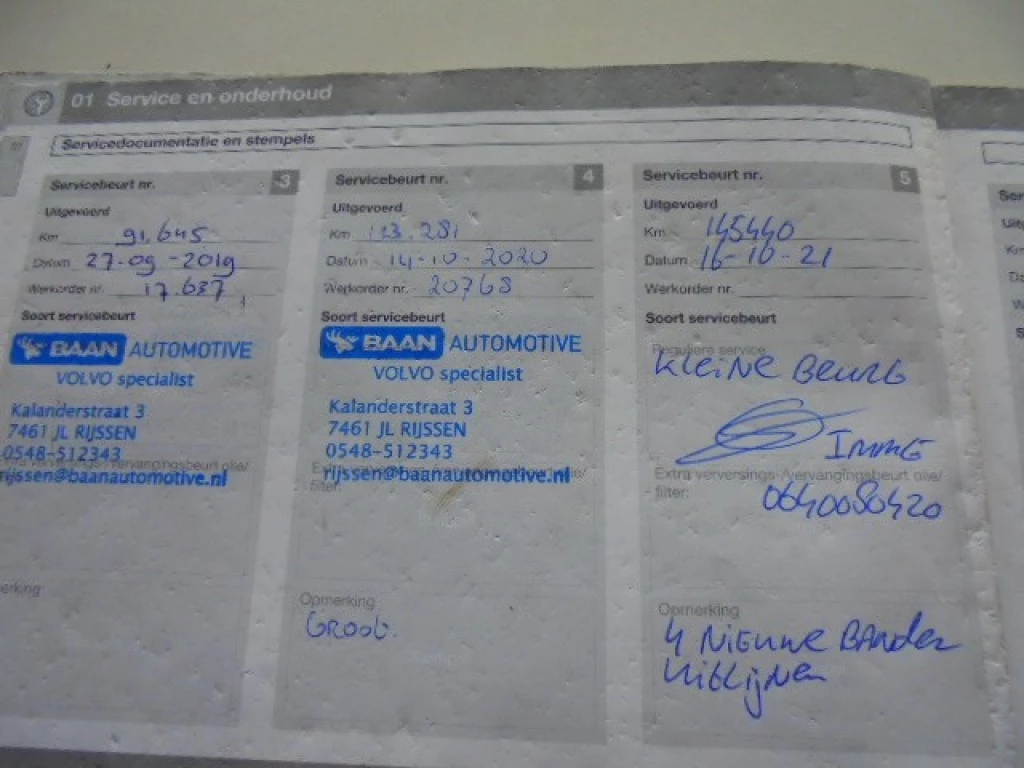 01 Service en onderhoud
Servicedocumentatie en stempels
Servicebeurt nr. 3
Uitgevoerd
Km 91.645
Datum 27-09-2019
Werkorder nr. 17.687
Soort servicebeurt
BAAN AUTOMOTIVE
VOLVO specialist
Kalanderstraat 3
7461 JL RIJSSEN
0548-512343
verversings-/vervangingsbeurt olie/
rijssen@baanautomotive.nl
Servicebeurt nr. 4
Uitgevoerd
Km 123.281
Datum 14-10-2020
Werkorder nr. 20768
Soort servicebeurt
BAAN AUTOMOTIVE
VOLVO specialist
Kalanderstraat 3
7461 JL RIJSSEN
0548-512343
rijssen@baanautomotive.nl
filter:
Opmerking
GROOT.
Servicebeurt nr. 5
Uitgevoerd
Km 145440
Datum 16-10-21
Werkorder nr.
Soort servicebeurt
Reguliere service
Kleine Beurt
Extra verversings-/vervangingsbeurt olie/
filter:
0640080420
Opmerking
4 Nieuwe Banden
Uitlijnen